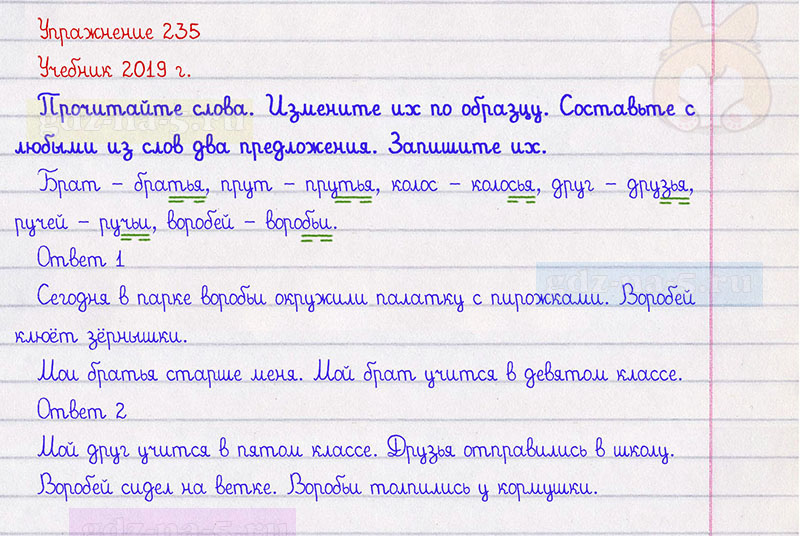 Упражнение 235
Учебник 2019 г.
Прочитайте слова. Измените их по образцу. Составьте с
любыми из слов два предложения. Запишите их.
Брат – братья, прут – прутья, колос – колосья, друг – друзья,
ручей – ручьи, воробей – воробьи.
Ответ 1
Сегодня в парке воробьи окружили палатку с пирожками. Воробей
клюёт зёрнышки.
Мои братья старше меня. Мой брат учится в девятом классе.
Ответ 2
Мой друг учится в пятом классе. Друзья отправились в школу.
Воробей сидел на ветке. Воробьи толпились у кормушки.
gdz-na-5.ru
gdz-na-5.ru
gdz-na-5.ru